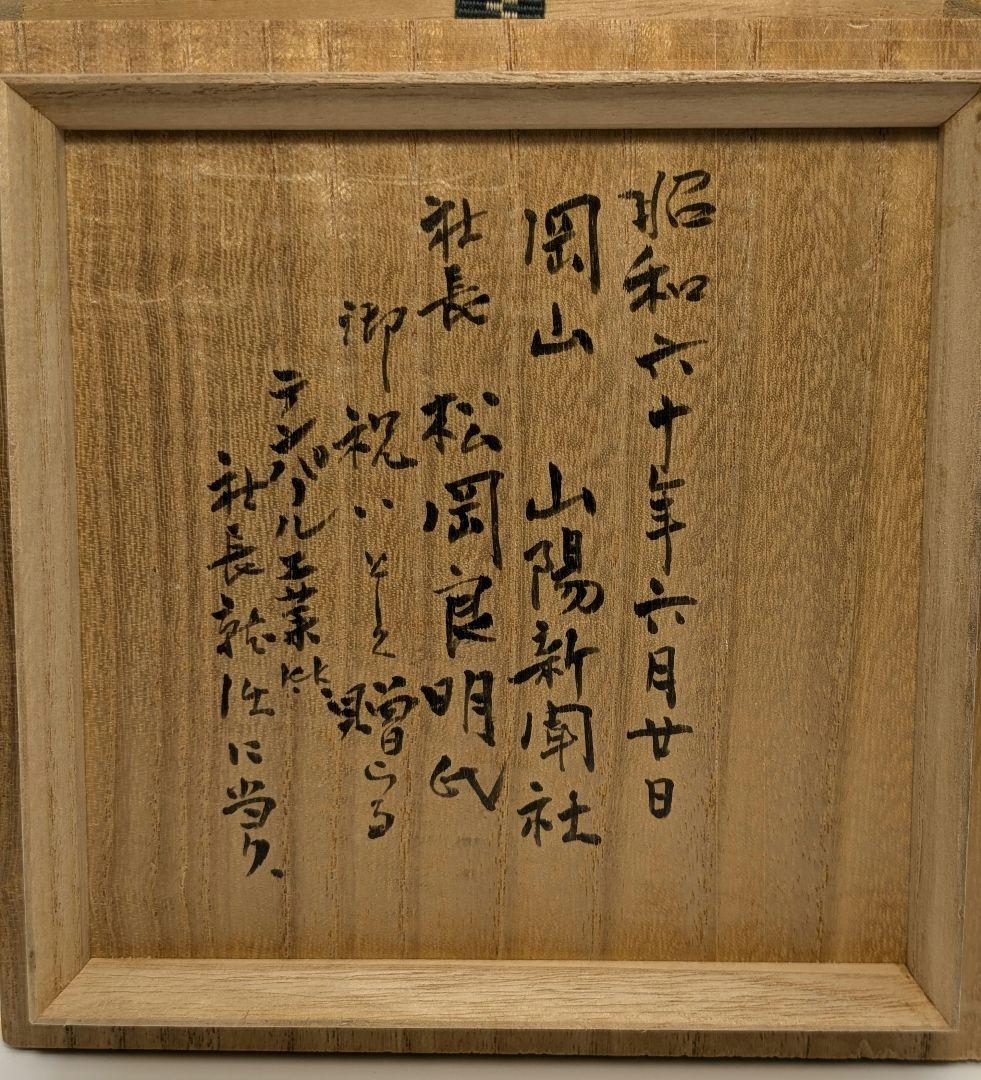 昭和六十年六月廿日
岡山 山陽新聞社
社長 松岡良明氏
御祝いとして贈らる
テンパール工業㈱
社長就任に当り、